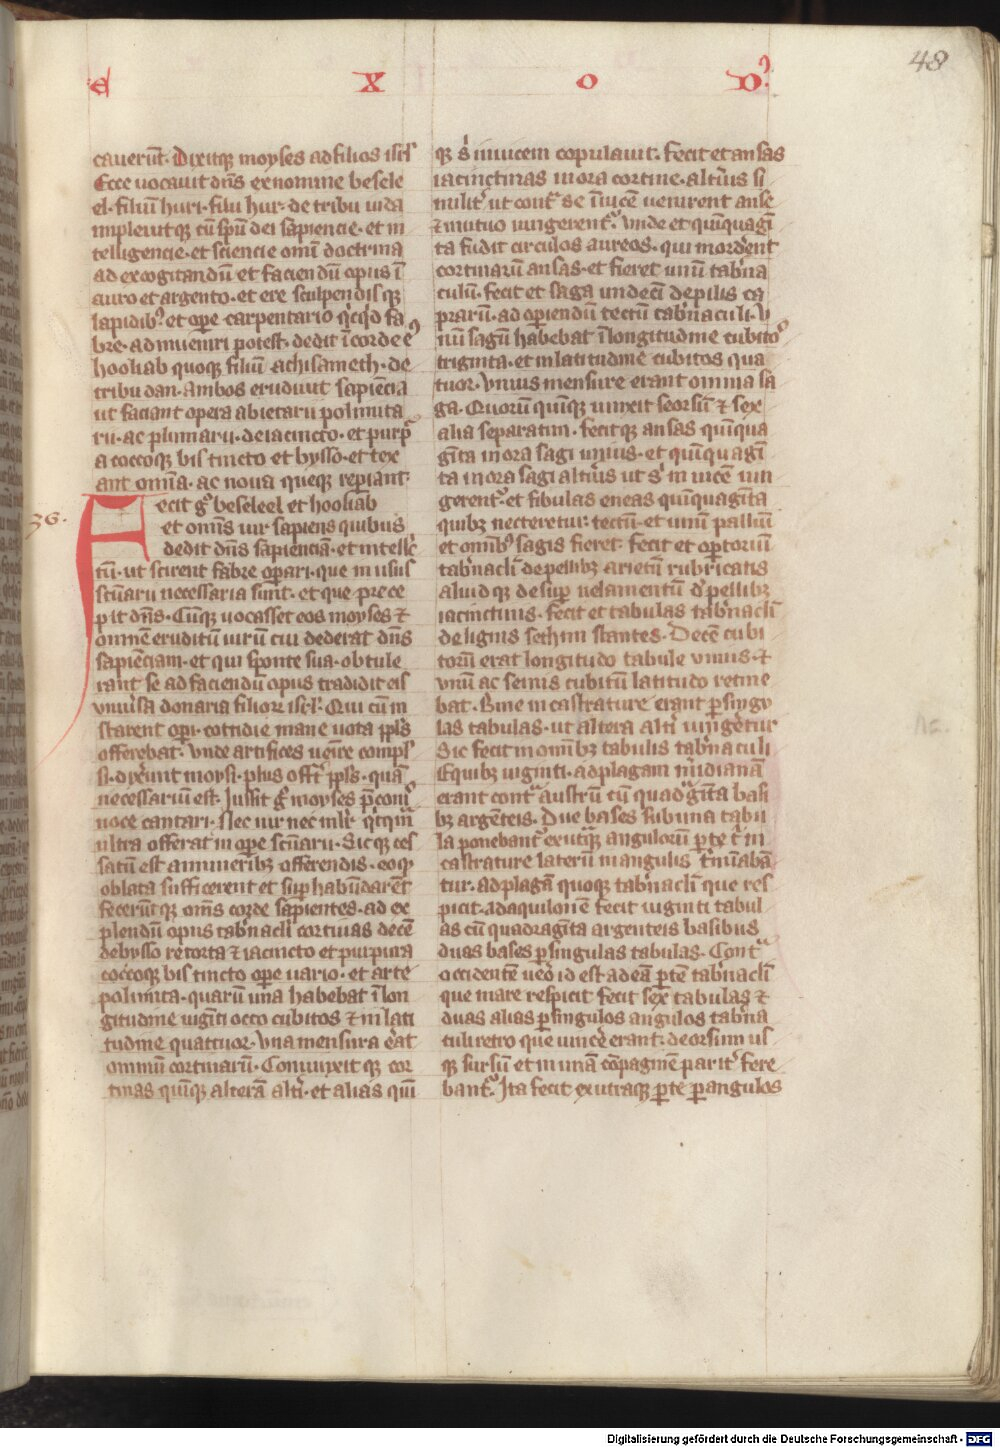 48
E X O Dꝰ
cauerūt. Dixitqꝫ moyses ad filios isrl̓
Ecce uocauit dn̄s ex nomine besele
el. filiū huri. filii hur. de tribu iuda
impleuitqꝫ eū spū dei sapiencie. et in
telligencie. et sciencie om̄i doctrina
ad excogitandū et faciendū opus ī
auro et argento. et ere sculpendisqꝫ
lapidibꝫ et oꝑe carpentario q̓cq̓d fa
bre. adinueniri potest. dedit ī corde eꝰ
hooliab quoqꝫ filiū achisameth. de
tribu dan. Ambos erudiuit sapiēcia
ut faciant opera abietarii polimita
rii. ac plumarii. de iacincto. et purp̄
a coccoqꝫ bis tincto et bysso. et tex
ant om̄ia. ac noua queqꝫ reꝑiant.
36.
Fecit gͦ beseleel et hooliab
et om̄is uir sapiens quibus
dedit dn̄s sapienciā. et intellc̄
tū. ut scirent fabre oꝑari. que in usus
sc̄uarii necessaria sunt. et que prece
pit dn̄s. Cūqꝫ uocasset eos moyses ⁊
omnē eruditū uirū cui dederat dn̄s
sapienciam. et qui sponte sua. obtule
rant se ad faciendū opus tradidit eis
vniu̓sa donaria filioꝝ isrl̓. Qui cū in
starent oꝑi. cotidie mane uota ppl̓s
offerebat. Vnde artifices uen̄re compl̓
si. dixer̄unt moysi. plus offert ppl̓s. quā
necessariū est. Iussit gͦ moyses p̄coniꝰ
uoce cantari. Nec uir nec mlr̄ q̓cq̄m
ultra offerat in oꝑe sc̄uarii. Sicqꝫ ces
satū est a muneribꝫ offerendis. eo qꝫ
oblata sufficerent et suꝑhabūdarēt
fecerūtqꝫ om̄s corde sapientes. ad ex
plendū opus tab̓nacl̓i cortinas decē
de bysso retorta ⁊ iacincto et purpura
coccoqꝫ bis tincto oꝑe uario. et arte
polimita. quarū una habebat ī lon
gitudine uigīti octo cubitos ⁊ in lati
tudine quattuor. Vna mensura erat
omniū cortinarū. Coniunxitqꝫ cor
tinas quīqꝫ alterā alt̓i. et alias quī
qꝫ s̓ inuicem copulauit. Fecit et ansas
iacinctinas in ora cortine. alt̓ius si
milit̓ ut cont̓ se īuicē uenirent anse
⁊ mutuo iungerent̓. Vnde et quīquagī
ta fudit circulos aureos. qui morderent
cortinarū ansas. et fieret unū tab̓na
culū. fecit et saga undecī de pilis ca
prarū. ad oꝑiendū tectū tab̓naculi. V
nū sagū habebat ī longitudine cubitoꝰ
triginta. et in latitudine cubitos qua
tuor. Vnius mensure erant omnia sa
ga. Quorū quīqꝫ iunxit seorsū ⁊ sex
alia separatim. fecitqꝫ ansas quīqua
gīta in ora sagi unius. et quīquagī
ta in ora sagi alt̓ius ut s̓ in uicē iun
gerent̓. et fibulas eneas quīquagīta
quibꝫ necteretur tectū. et unū palliū
et om̄ibꝰ sagis fieret. fecit et oꝑtoriū
tab̓nacl̓i de pellibꝫ arietū rubricatis
aliud qꝫ desuꝑ uelamentū d̓ pellibꝫ
iacinctinis. fecit et tabulas tab̓nacl̓i
de lignis sethim stantes. Decē cubi
torū erat longitudo tabule vnius. ⁊
vnū ac semis cubitū latitudo retine
bat. Bine incastrature erant ꝑ singu
las tabulas. ut altera alt̓i iungeretur
Sic fecit in om̄ibꝫ tabulis tab̓naculi
E quibꝫ uiginti. ad plagam m̓idianā
erant cont̓ austrū cū quadraḡīta basi
bꝫ argēteis. Due bases sub una tabu
la ponebant̓ ex utqꝫ anguloꝝ ꝑte ī in
castrature laterū in angulis t̓minabā
tur. ad plagā quoqꝫ tab̓nacl̓i que res
picit. ad aquilonē fecit uiginti tabul
as cū quadragīta argenteis basibus
duas bases ꝑ singulas tabulas. Cont̓
occidentē uero id est ad eā ꝑtē tab̓nacl̓i
que mare respicit fecit sex tabulas ⁊
duas alias ꝑ singulos angulos tab̓na
culi retro que uincte erant. deorsum us
qꝫ sursū et in unā cōpaginē parit̓ fere
bant̓. Ita fecit ex utraqꝫ ꝑte ꝑ angulos
Digitalisierung gefördert durch die Deutsche Forschungsgemeinschaft - DFG